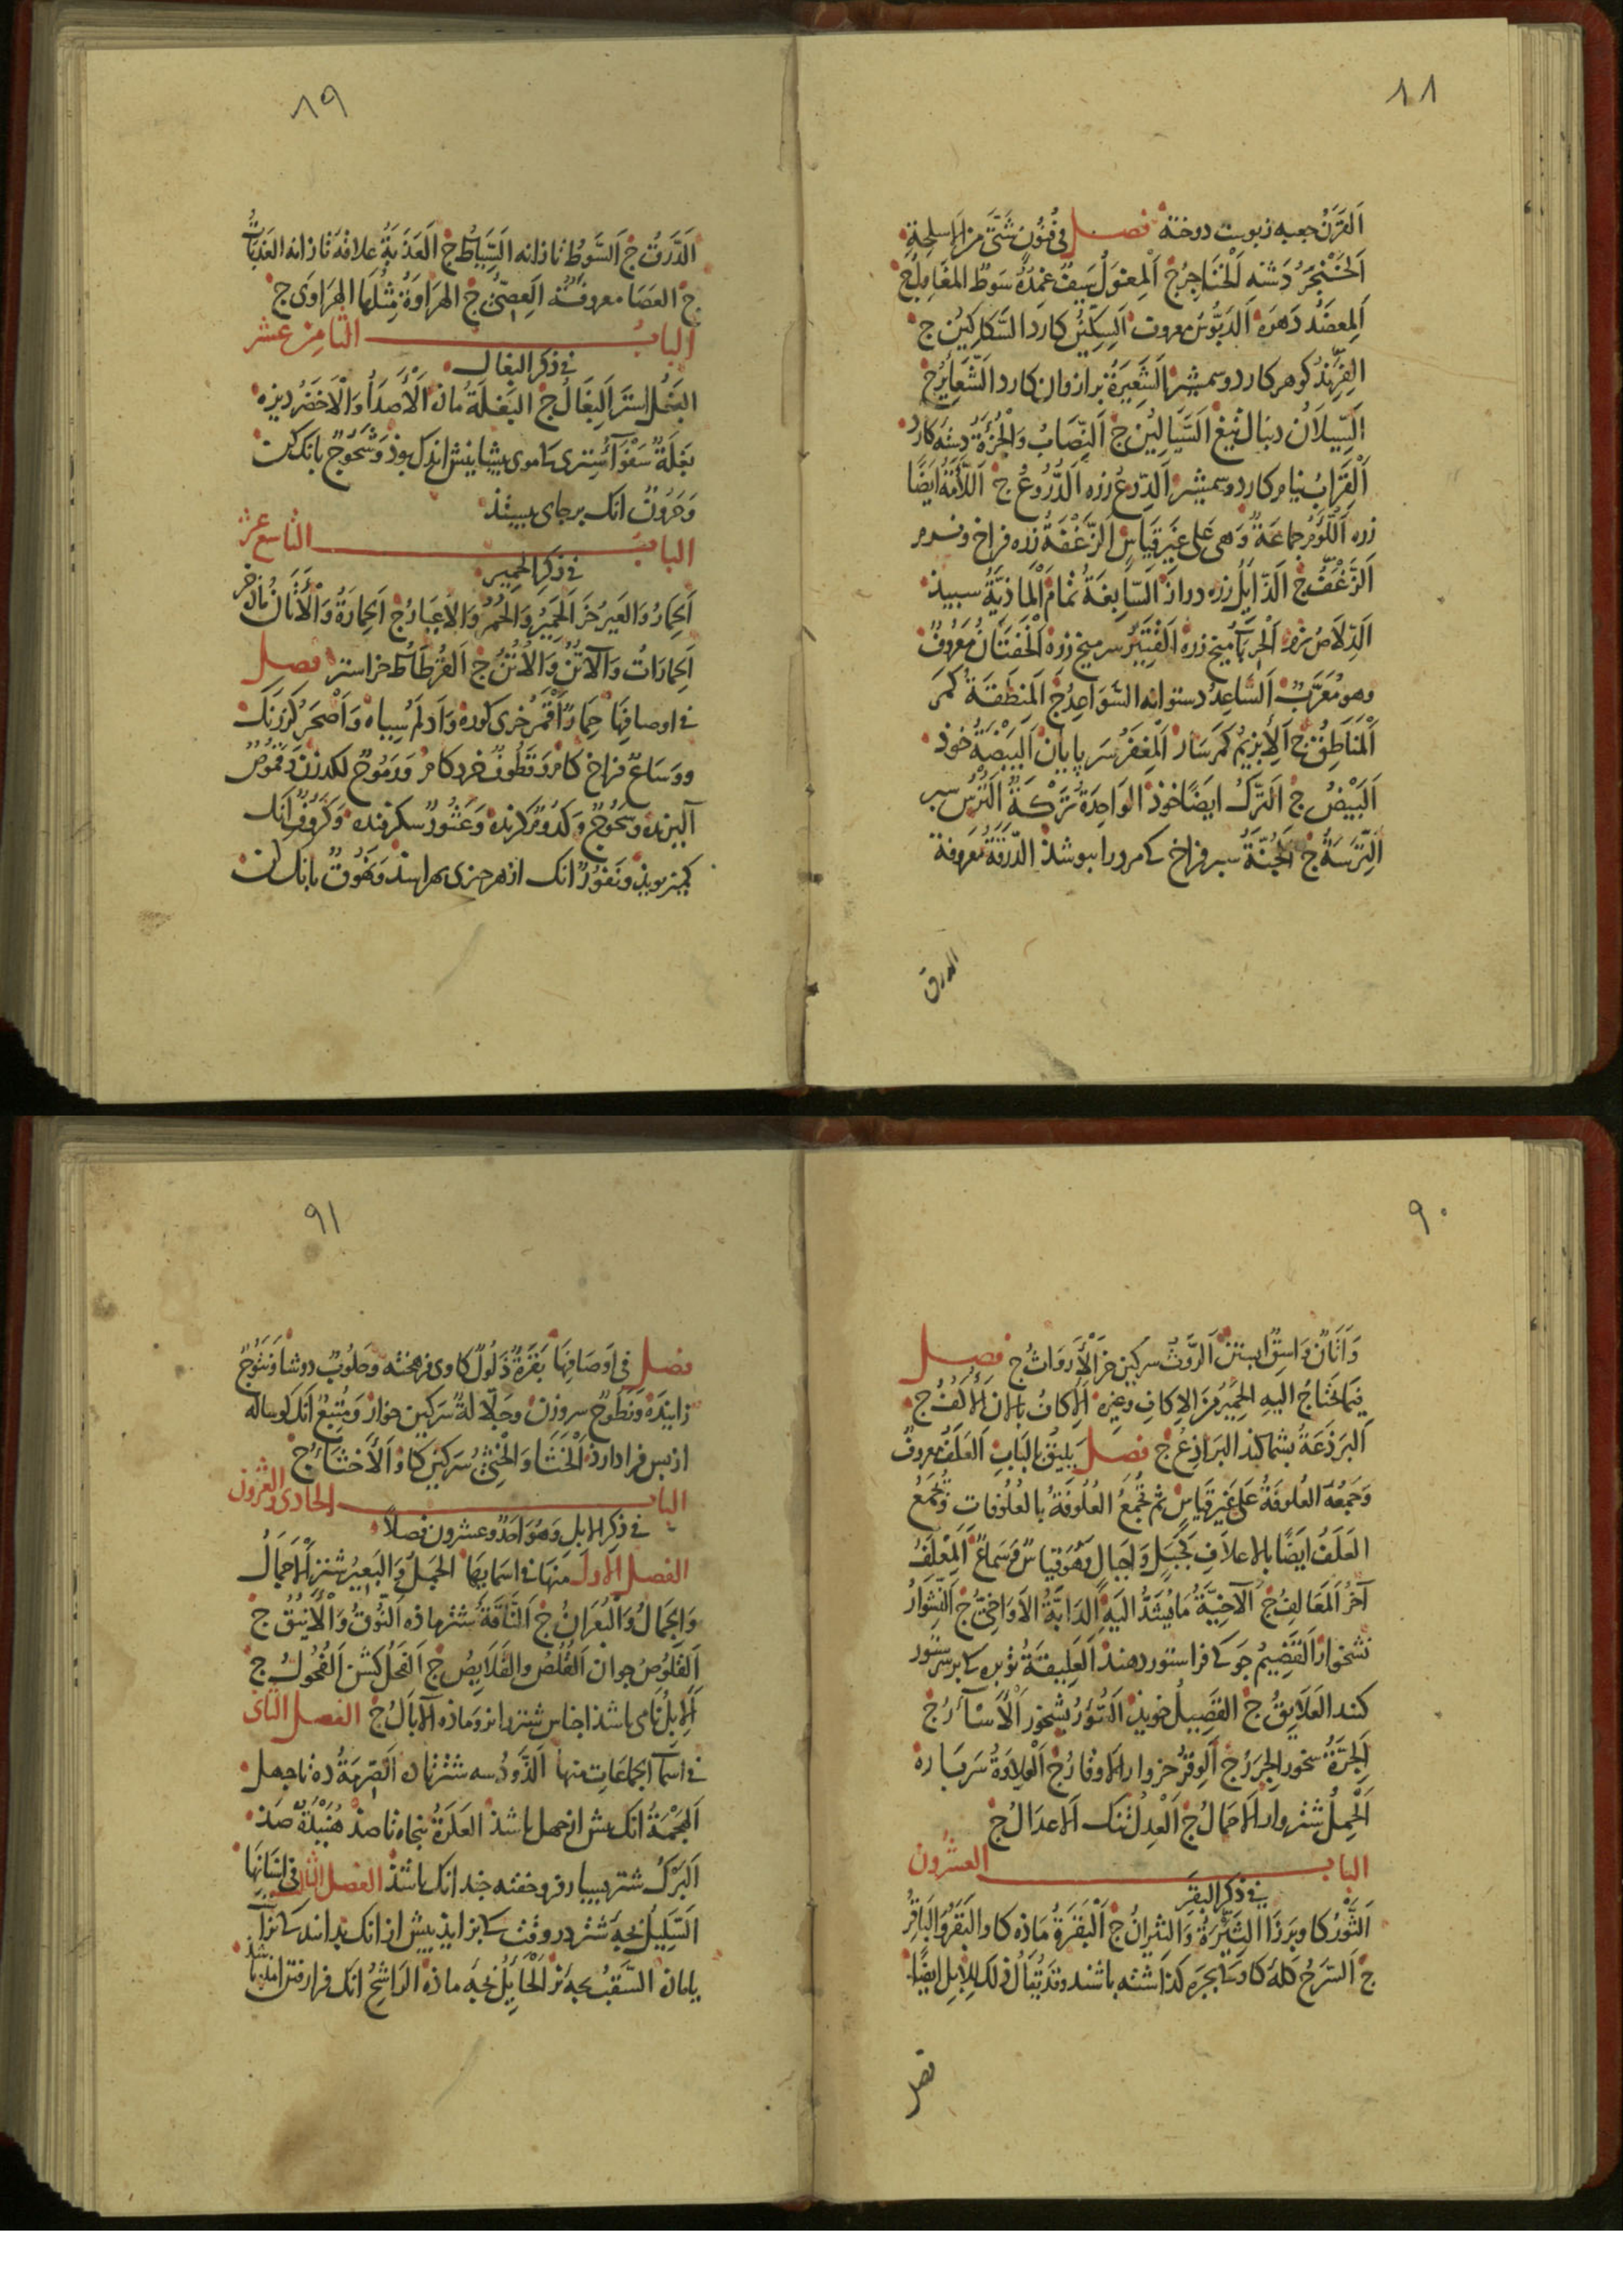 ٨٨
اَلقَرَنُ جعبه ز پوست دوخته فصل فی فُنُونٍ شَتّی مِنَ الاسلِحَةِ
اَلخَنْجَرُ دَشنه اَلْخَنَاجِرُ ج اَلْمِغوَلُ سَیفٌ غِمدُهُ سَوطٌ المَغَاوِلُ ج
اَلمِعضَدُ دَهره اَلدَبُّوسُ معروف اَلسِکّینُ کارد السَّکاکِینُ ج
الفِرِندُ کوهر کارد و سمشیر الشَعِیرَةُ برازوان کارد الشَّعَایِرُ ج
اَلسِّیلَانُ دنبال تیغ السَّیَالِینُ ج اَلنِّصَابُ وَالْجُزْءَةُ دسته کارد
اَلْقِرَابُ نیام کارد و سمیشیر اَلدِّرعُ زره اَلدُّرُوعُ ج اَللَّأْمَةُ ایضًا
زره اَللُّؤَمُ جماعَةٌ وَهی عَلی غَیرِ قِیَاسٍ الزَّغْفَةُ زره فراخ و نرم
اَلزَّغْفُ ج اَلذَّایِلُ زره دراز السَّابِغَةُ تمام اَلْمَاذِیَّةُ سبید
اَلدِّلَاصُ نرم اَلْحِربَآءُ میخ زره اَلْقَتِیرُ سرمیخ زره اَلْخَفتَانُ مَعرُوفٌ
وهو مُعَرَّبٌ اَلسَّاعِدُ دستوانه السَّوَاعِدُ ج اَلمِنطَقَةُ کَمَر
اَلْمَنَاطِقُ ج اَلْاِبزِیمُ کمرسار اَلْمِغفَرُ سَر پایان اَلْبَیْضَةُ خوذ
اَلبَیْضُ ج اَلتَّرکُ ایضًا خوذ الوَاحِدَةُ تَرْکَةٌ اَلتُرسُ سبر
التِّرَسَةُ ج اَلْجُنَّةُ سبر فراخ کی مرد را ببوشذ الدَّرَقَةُ مَعروفة
الدرق
٨٩
اَلدَّرَقُ ج اَلسَّوطُ تازانه السِّیَاطُ ج اَلعَذَبَةُ علاقهٔ تازانه العَذَبَاتُ
ج العَصَا معروفَةٌ اَلعِصِیُّ ج الهِرَاوَةُ مِثلُهَا الهَرَاوَی ج
الباب الثامن عشر
فی ذکر البغال
البَغلُ استر اَلبِغَالُ ج البَغلَةُ ماذه اَلْأَصدَأُ وَالْاَخضَرُ دیزه
بَغلَةٌ سَفوَآءُ استری کی موی بیشانیش اندک بوذ وَشَحُوجٌ بانک کن
وَحَرُونٌ انک بر جای بیستذ
الباب التاسع عشر
فی ذکر الحمیر
اَلحِمَارُ وَالعَیرُ خر اَلحَمِیرُ وَالحُمُرُ وَالاعیَارُ ج اَلحِمَارَةُ وَالْأَتَانُ ماذه خر
اَلحِمَارَاتُ وَالآتُنُ وَالاُتُنُ ج اَلقُرطَاطُ خراستر فصل
فی اوصافِهَا حِمَارٌ أَقْمَرُ خری کبوده وَادلَمُ سیاه وَاَصحَرُ کردرنک
ووَسَاعٌ فراخ کام وَقَطُوفٌ خرد کام وَرَمُوحٌ لکدزن وَقَمُوصٌ
آلیزنده وسَحُوجٌ وکَدُومٌ کزنده وَعَثُورٌ سکرفنده وَکَرُوفٌ انک
کمیز بویذ ونَفُورٌ انک از هر جیزی بهراسذ وَنَهُوقٌ بانک کن
٩٠
وَأَتَانٌ وَاسِقٌ ابستن اَلرَّوثُ سرکین خر اَلْأَروَاثُ ج فصل
فیما یحتاج الیهِ الحَمِیرُ مِنَ الاِکافِ وغیره اَلاِکافُ بالان اَلاُکُفُ ج
اَلبَرذَعَةُ بشماکند البَرَاذِعُ ج فصل یَلِیقُ بِالبَابِ اَلعَلَفُ معروف
وَجَمعُهُ العُلُوفَةُ عَلی غَیرِ قِیَاسٍ ثم تُجمَعُ العُلُوفَةُ بالعُلُوفَاتِ وَتُجمَعُ
العَلَفُ ایضًا بالاعلَافِ کَجَبَلٍ وَاَجبَالٍ وَهُوَ قیاسٌ وَسَمَاعٌ اَلمِعلَفُ
آخُر اَلمَعَالِفُ ج الآخِیَّةُ مَا یُشَدُّ الیَهِ الدَابَّةُ الاَوَاخِیُّ ج اَلنِّشوَارُ
نشخوار القَضِیمُ جو کی فرا ستور دهند اَلعَلِیقَةُ توبره کی بر سر ستور
کنند العَلَایِقُ ج القَصِیلُ خویذ اَلسُّؤرُ بشخور اَلْأَسْآرُ ج
اَلجِرَّةُ سخور الجِرَرُ ج اَلوِقرُ خروار الاوقارُ ج اَلْعِلاوَةُ سَرباره
اَلْحِملُ شتروار الاحمَالُ ج اَلْعِدلُ تنک اَلاعدَالُ ج
الباب العشرون
فی ذکر البقر
اَلثَّورُ کاو برزا الثِیَرَةُ وَالثِیرَانُ ج اَلْبَقَرَةُ ماذه کاو البَقَرُ وَالبَاقِرُ
ج اَلسَّرحُ کله کاو کی بجره کذاشته باشند وقد یُقَالُ ذلک لِلاِبلِ ایضًا
فصل
٩١
فصل فی اَوصَافِهَا بَقَرَةٌ ذَلُولٌ کاوی فرهخته وحَلُوبٌ دوشا وَنَتُوجٌ
زاینده وَنَطُوحٌ سروزن وجَلَّالَةٌ سَرکین خوار وَمُتبِعٌ انک کوساله
از بس فرا دارذ اَلْخَثَا وَالْخِثْیُ سَرکین کاو اَلْأَخثَاءُ ج
الباب الحادی والعشرون
فی ذکر الابل وَهُوَ اَحَدٌ وعشرون فصلاً
الفصل الاول منها فی اسمایها الجَمَلُ وَالبَعِیرُ شتر اَلاَجمَالُ
وَالجِمَالُ وَالبُعرَانُ ج اَلنَّاقَةُ شتر ماذه اَلنُّوقُ وَالْأَیْنُقُ ج
اَلقَلُوصُ جوان اَلقُلُصُ وَالقَلَایِصُ ج اَلفَحلُ کشن اَلفُحُولُ ج
اَلاِبِلُ نامی باشذ اجناس شتر را نر و ماذه الآبَالُ ج الفصل الثانی
فی اسمآ الجماعَاتِ منها اَلذَّودُ سه شتر تا ده اَلصِّرمَةُ ده تا جهل
اَلهَجْمَةُ انک بیش از جهل باشذ العَکَرَةُ بنجاه تا صذ هُنَیْدَةٌ صذ
اَلبَرْکُ شتر بسیار فرو خفته جندانک باشذ الفصل الثالث فی اَسنَانِهَا
اَلسَّلِیلُ بجهٔ شتر در وقت کی بزایذ بیش از انک بدانند کی نر است
یا ماذه السَّقبُ بجهٔ نر اَلْحَایِلُ بجهٔ ماذه الرَاشِحُ انک فرا رفتن امذه باشذ